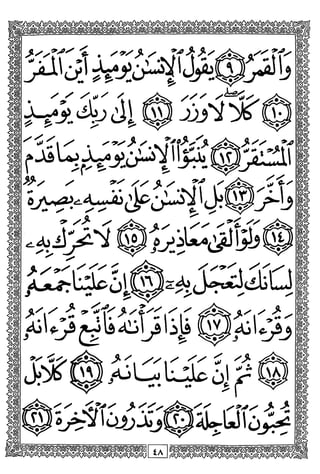 وَٱلْقَمَرُ ٩ يَقُولُ ٱلْإِنسَٰنُ يَوْمَئِذٍ أَيْنَ ٱلْمَفَرُّ
١٠ كَلَّا لَا وَزَرَ ١١ إِلَىٰ رَبِّكَ يَوْمَئِذٍ
ٱلْمُسْتَقَرُّ ١٢ يُنَبَّؤُا۟ ٱلْإِنسَٰنُ يَوْمَئِذٍۭ بِمَا قَدَّمَ
وَأَخَّرَ ١٣ بَلِ ٱلْإِنسَٰنُ عَلَىٰ نَفْسِهِۦ بَصِيرَةٌ
١٤ وَلَوْ أَلْقَىٰ مَعَاذِيرَهُۥ ١٥ لَا تُحَرِّكْ بِهِۦ
لِسَانَكَ لِتَعْجَلَ بِهِۦٓ ١٦ إِنَّ عَلَيْنَا جَمْعَهُۥ
وَقُرْءَانَهُۥ ١٧ فَإِذَا قَرَأْنَٰهُ فَٱتَّبِعْ قُرْءَانَهُۥ
١٨ ثُمَّ إِنَّ عَلَيْنَا بَيَانَهُۥ ١٩ كَلَّا بَلْ
تُحِبُّونَ ٱلْعَاجِلَةَ ٢٠ وَتَذَرُونَ ٱلْءَاخِرَةَ ٢١
٤٨